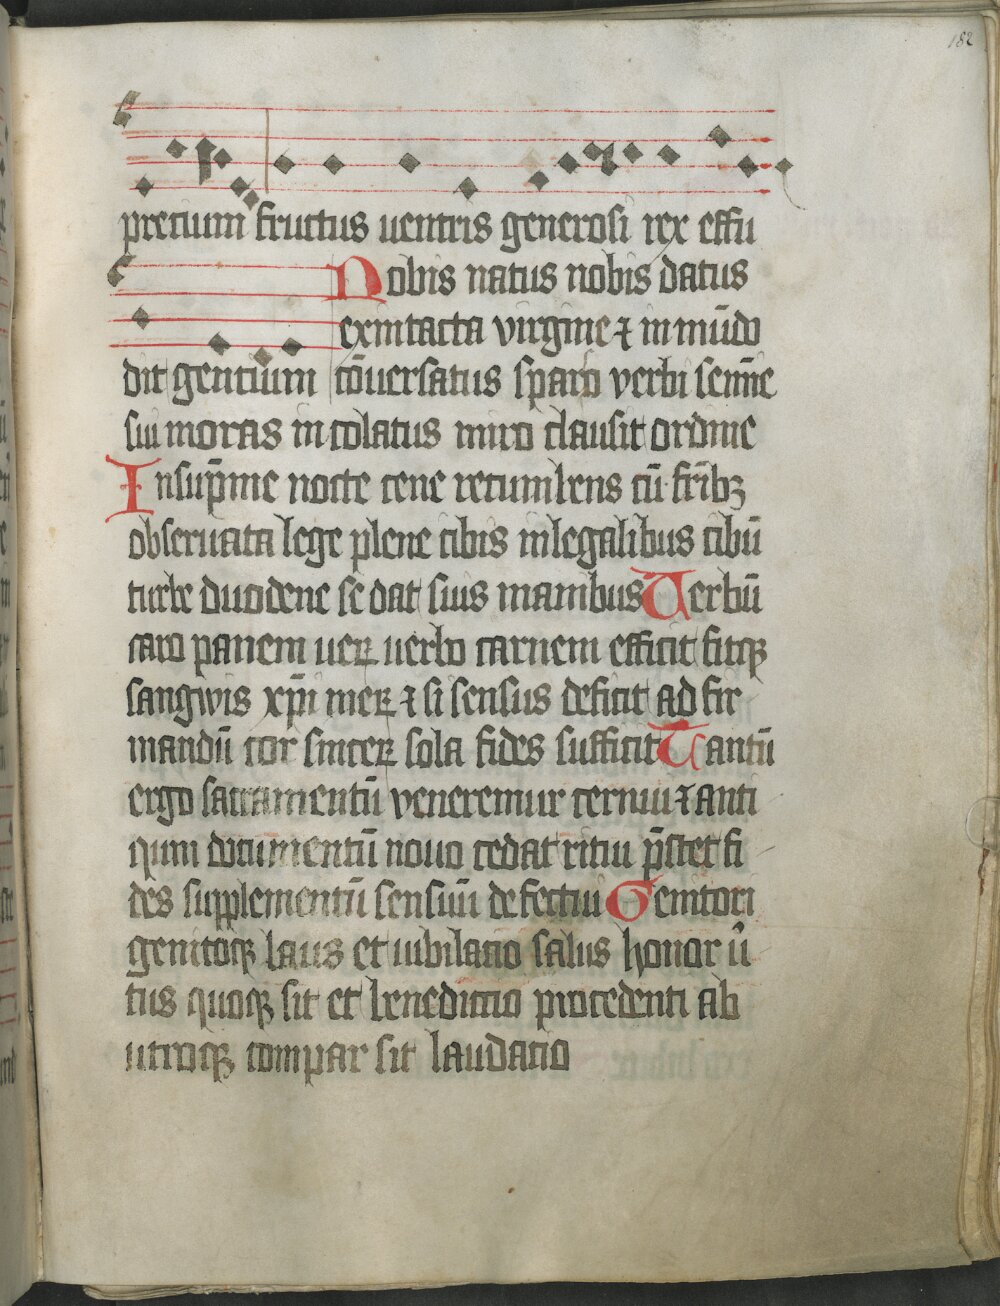 182
precium fructus uentris generosi rex effu
Nobis natus nobis datus
exintacta virgine ⁊ in mūdo
dit gentium cōuersatus sparso verbi semīe
sui moras incolatus miro clausit ordine
Insup̄me nocte cene recumbens cū fr̄ibꝫ
obseruata lege plene cibis inlegalibus cibū
turbe duodene se dat suis manibus Uerbū
caro panem ueꝝ uerbo carnem efficit fitqꝫ
sangwis xp̄i meꝝ ⁊ si sensus deficit ad fir
mandū cor sinceꝝ sola fides sufficit Tantū
ergo sacramentū veneremur cernui ⁊ anti
qum documentū nouo cedat ritui p̄stet fi
des supplementū sensuū defectui Genitori
genitoqꝫ laus et iubilatio salus honor ū
tus quoqꝫ sit et benedictio procedenti ab
utroqꝫ compar sit laudatio